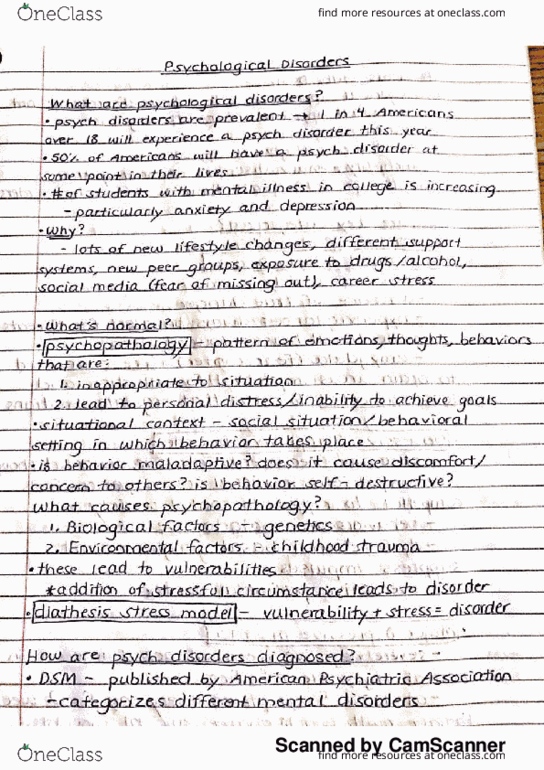 OneClass
find more resources at oneclass.com
Psychological Disorders
What are psychological disorders?
• psych disorders are prevalent → 1 in 4 Americans
over 18 will experience a psych disorder this year
• 50% of Americans will have a psych disorder at
some point in their lives
• # of students with mental illness in college is increasing
- particularly anxiety and depression
• Why?
- lots of new lifestyle changes, different support
systems, new peer groups, exposure to drugs/alcohol,
social media (fear of missing out), career stress
• What's normal?
• psychopathology - pattern of emotions, thoughts, behaviors
that are:
1. inappropriate to situation
2. lead to personal distress/inability to achieve goals
• situational context - social situation/behavioral
setting in which behavior takes place
• is behavior maladaptive? does it cause discomfort/
concern to others? is behavior self-destructive?
What causes psychopathology?
1. Biological factors - genetics
2. Environmental factors - childhood trauma
• these lead to vulnerabilities
*addition of stressful circumstance leads to disorder
• diathesis stress model - vulnerability + stress = disorder
How are psych disorders diagnosed?
• DSM - published by American Psychiatric Association
- categorizes different mental disorders
Scanned by CamScanner
OneClass
find more resources at oneclass.com